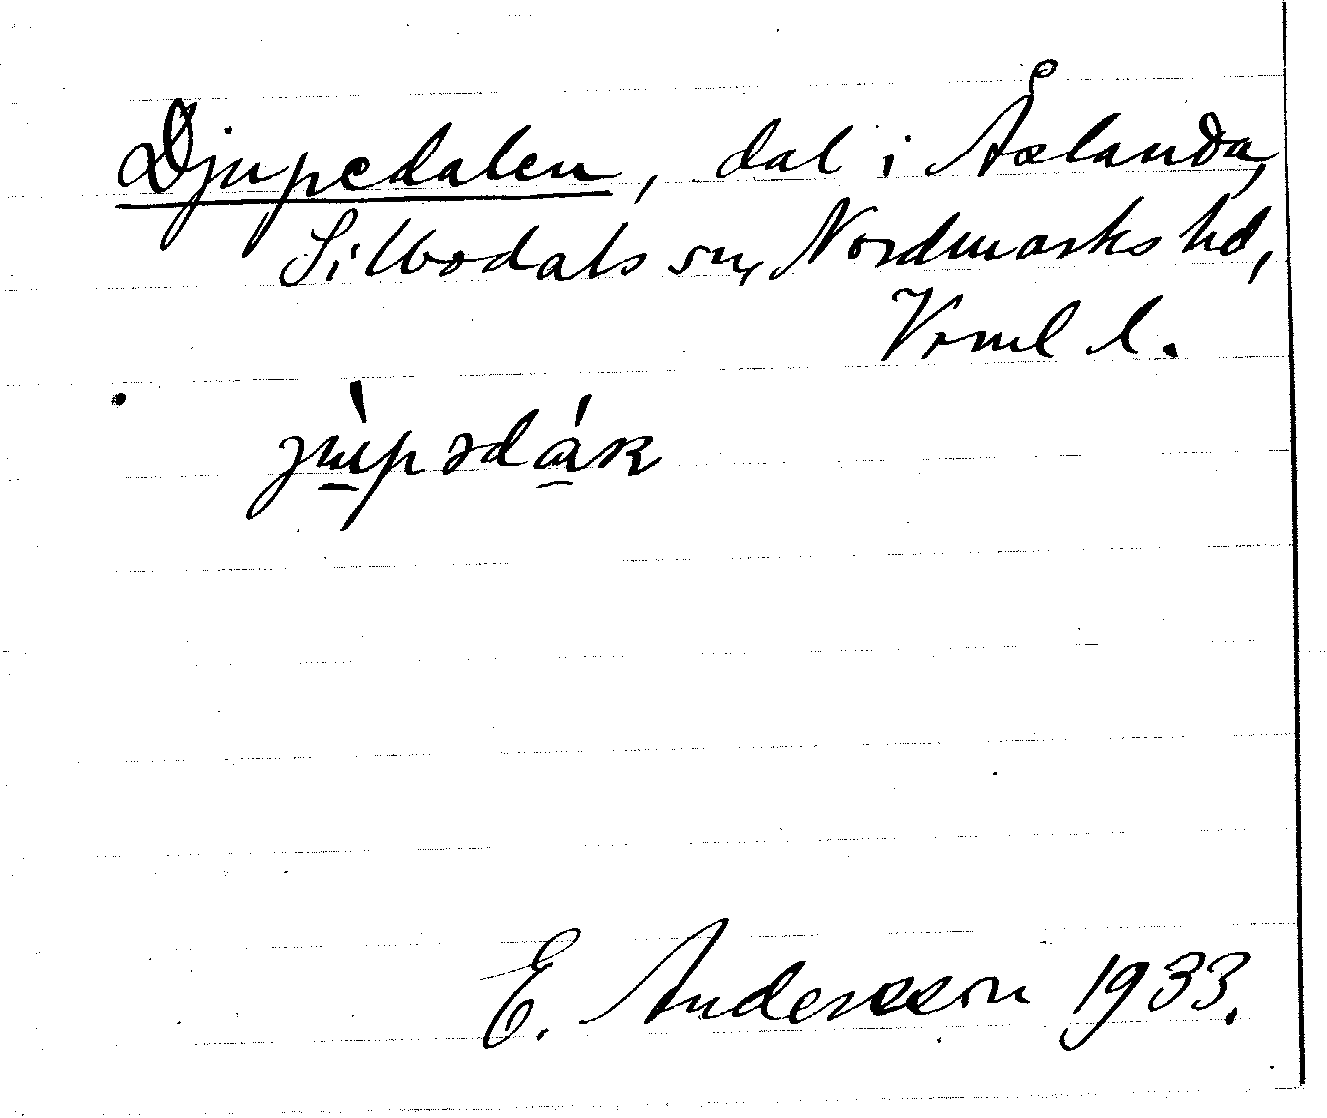 Djupedalen, dal i Åslanda,
Silbodals sn, Nordmarks hd,
Vrml l.
E. Andersson 1933.